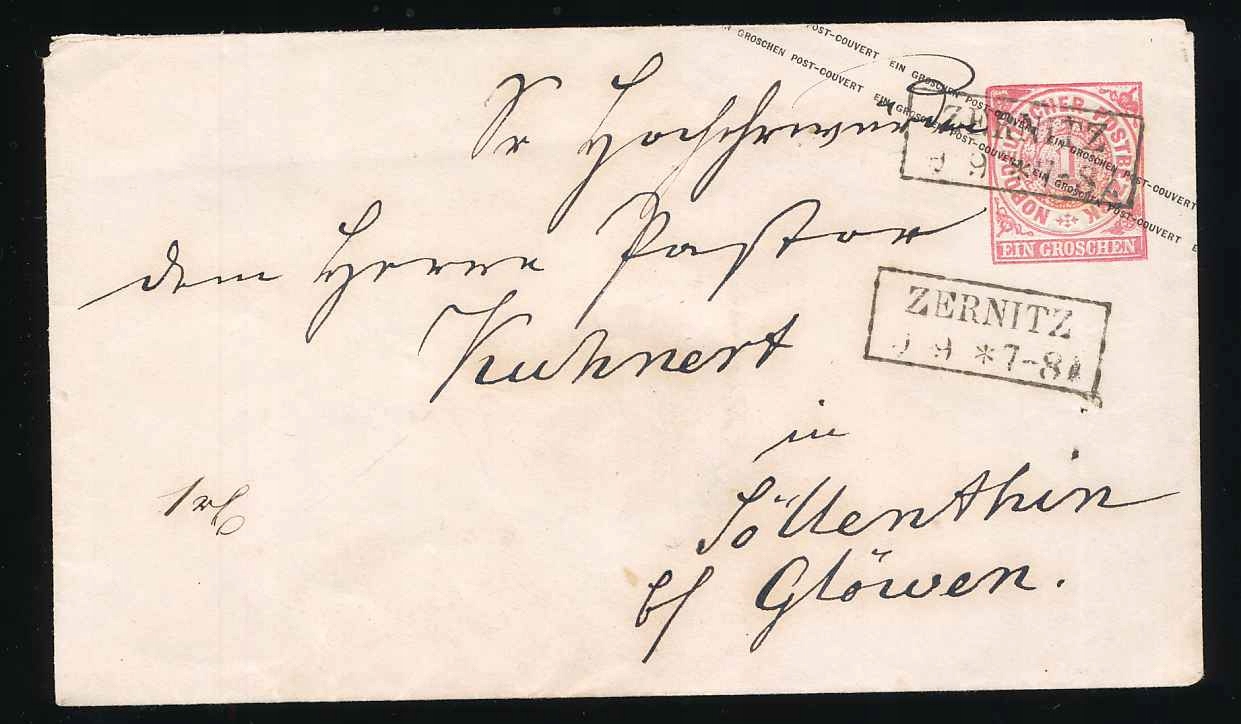 EIN GROSCHEN POST-COUVERT EIN GROSCHEN POST-COUVERT EIN GROSCHEN POST-COUVERT
GROSCHEN POST-COUVERT EIN GROSCHEN POST-COUVERT EIN GROSCHEN POST-COUVERT
NORDDEUTSCHER POSTBEZIRK
1
EIN GROSCHEN
ZERNITZ
9 9 * 7-8
Sr Hochehrwürden
dem Herrn Pastor
Kuhnert
ZERNITZ
9 9 * 7-8 A
in
Söllenthin
b/ Glöwen.